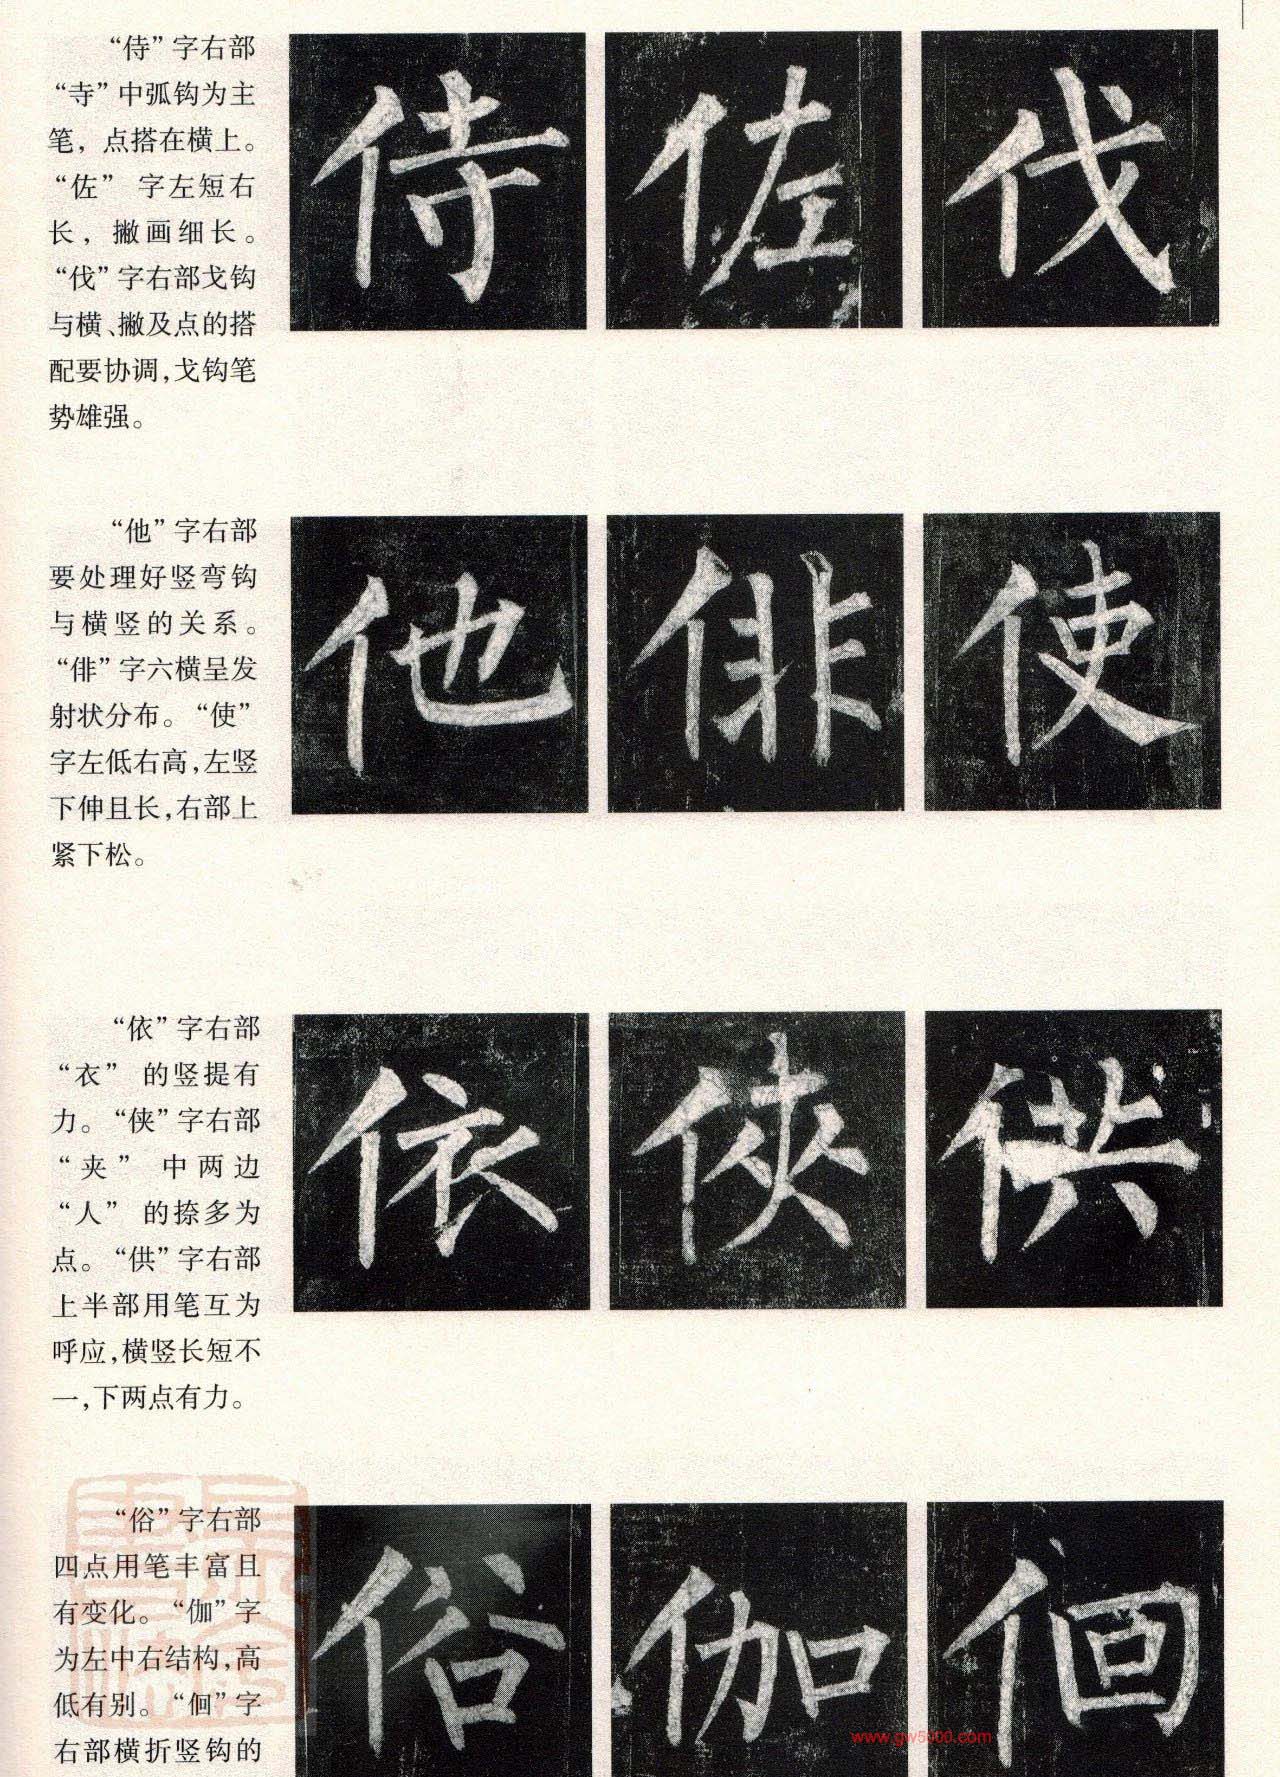 “侍”字右部
“寺”中弧钩为主
笔，点搭在横上。
“佐”字左短右
长，撇画细长。
“伐”字右部戈钩
与横、撇及点的搭
配要协调，戈钩笔
势雄强。
侍 佐 伐
“他”字右部
要处理好竖弯钩
与横竖的关系。
“俳”字六横呈发
射状分布。“使”
字左低右高，左竖
下伸且长，右部上
紧下松。
他 俳 使
“依”字右部
“衣”的竖提有
力。“侠”字右部
“夹”中两边
“人”的捺多为
点。“供”字右部
上半部用笔互为
呼应，横竖长短不
一，下两点有力。
依 俠 供
“俗”字右部
四点用笔丰富且
有变化。“伽”字
为左中右结构，高
低有别。“佪”字
右部横折竖钩的
俗 伽 佪
www.gw5000.com